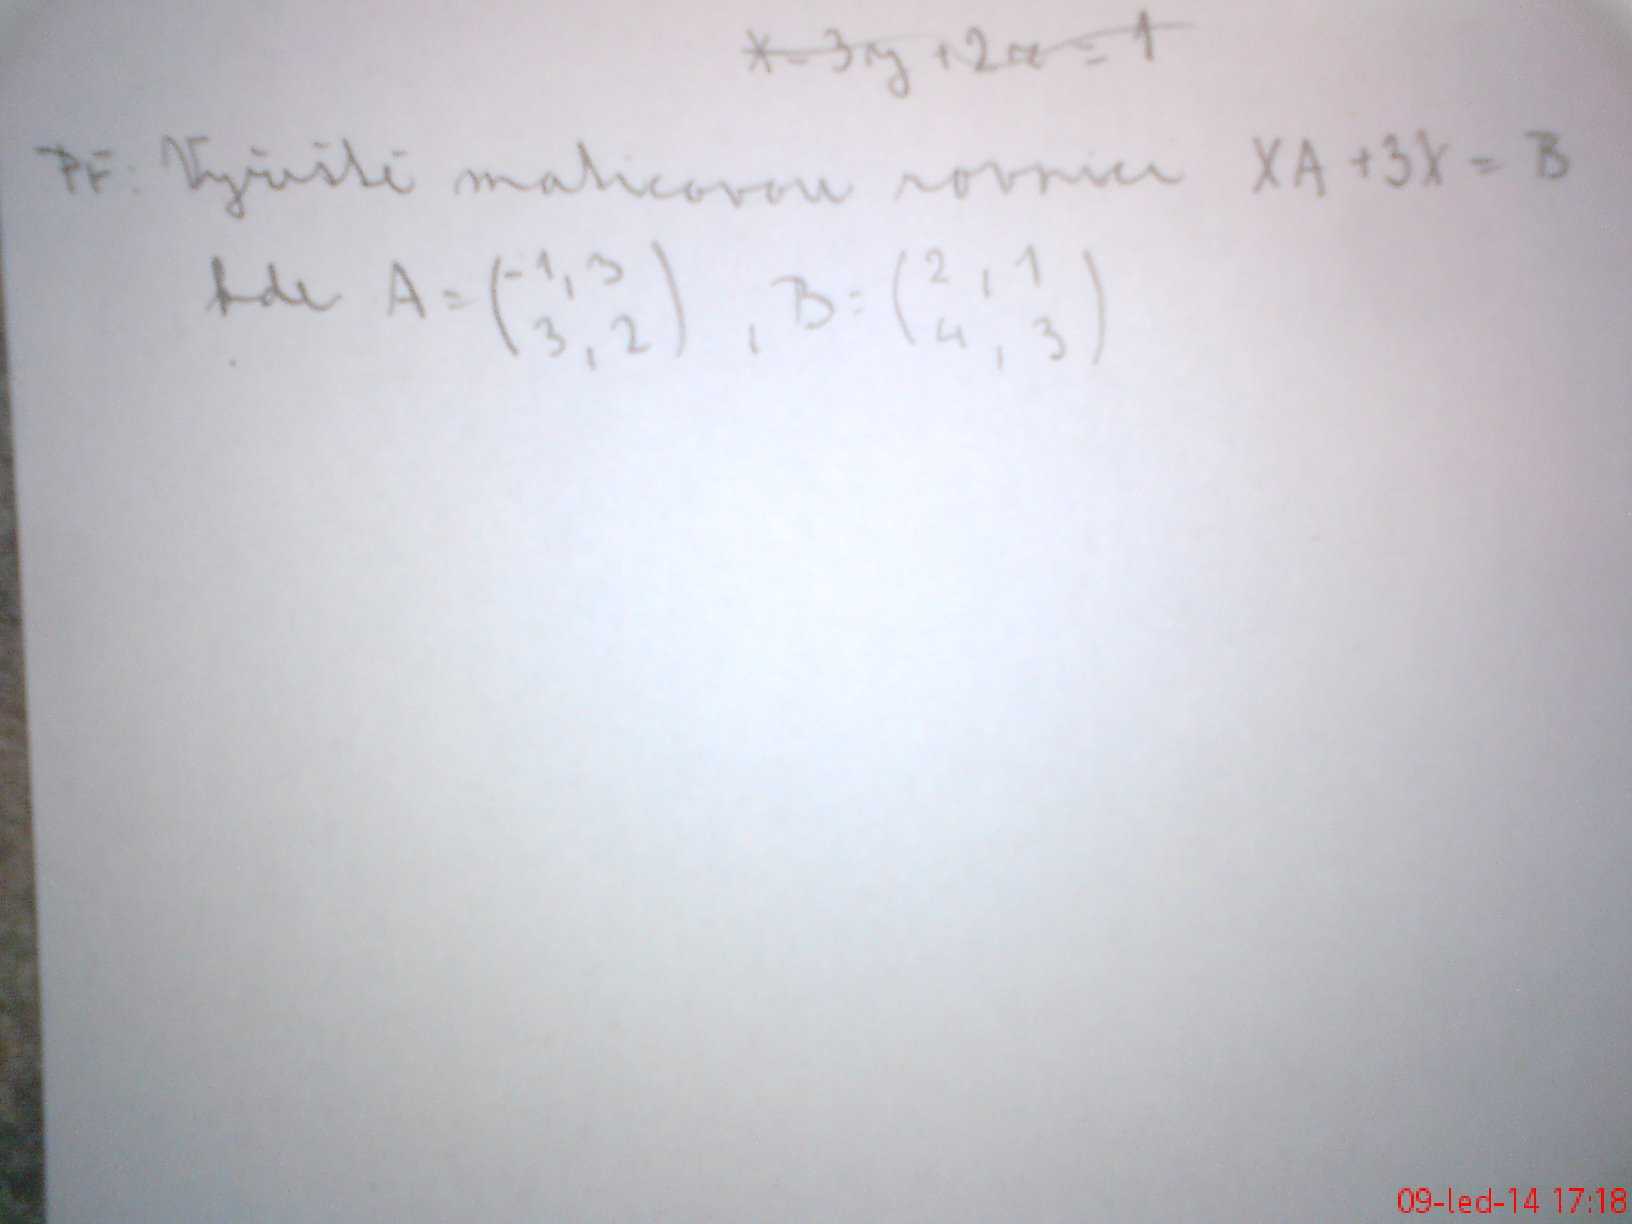 x - 3y + 2z = 1
Př: Vyřešte maticovou rovnici XA + 3X = B
kde A = (-1, 3
3, 2) , B = (2, 1
4, 3)
09-led-14 17:18